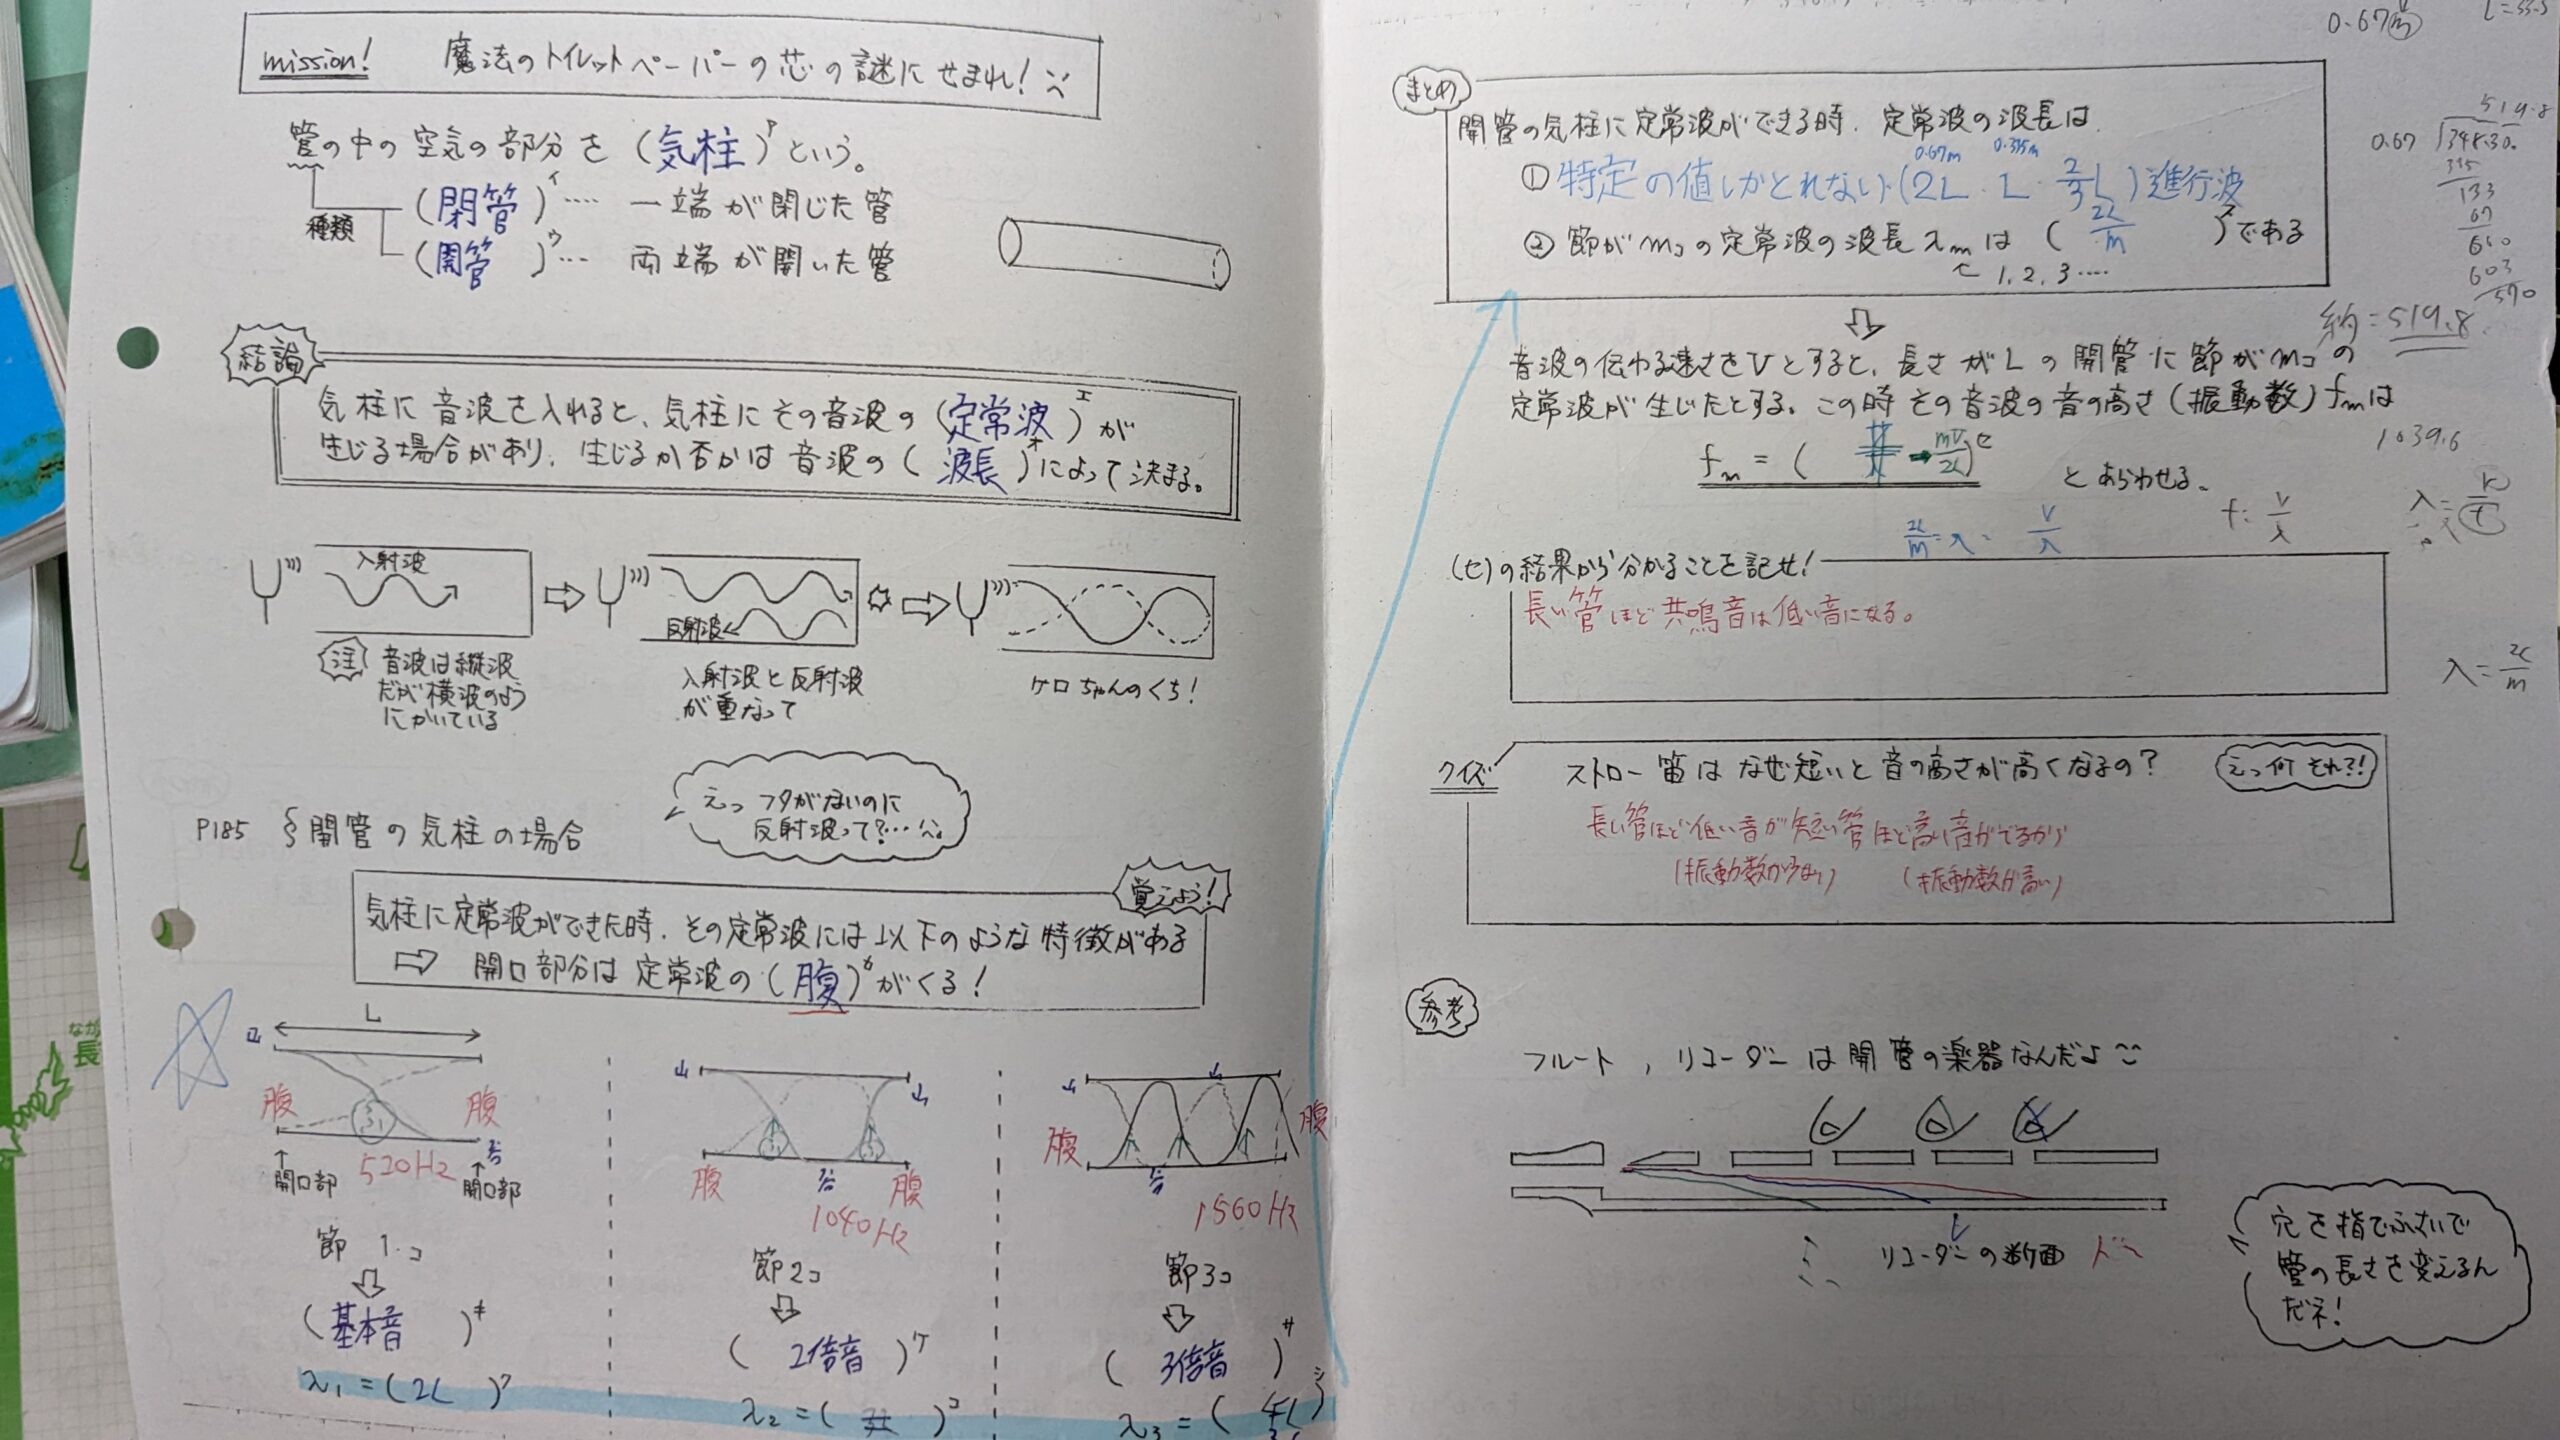 mission! 魔法のトイレットペーパーの芯の謎にせまれ!
管の中の空気の部分を(気柱)ア という。
種類
(閉管)イ ‥‥ 一端が閉じた管
(開管)ウ ‥‥ 両端が開いた管
結論
気柱に音波を入れると、気柱にその音波の(定常波)エ が
生じる場合があり、生じるか否かは音波の(波長)オ によって決まる。
入射波
反射波
注 音波は縦波
だが横波のよう
にかいている
入射波と反射波
が重なって
ケロちゃんのくち!
えっ フタがないのに
反射波って?…
P185 § 開管の気柱の場合
覚えよう!
気柱に定常波ができた時、その定常波には以下のような特徴がある
⇨ 開口部分は定常波の(腹)カ がくる!
L
山 山 山 山
腹 腹 腹 腹 腹 腹
谷 谷 谷
開口部 520Hz 開口部
1040Hz
1560Hz
節 1コ
節2コ
節3コ
(基本音)キ
(2倍音)ケ
(3倍音)サ
λ1 = (2L)ク
λ2 = ( )コ
λ3 = ( )シ
0.67m
まとめ
開管の気柱に定常波ができる時、定常波の波長は、
0.67m 0.335m
① 特定の値しかとれない(2L・L・2/3L)進行波
② 節がmコの定常波の波長λmは(2L/m)ス である
1, 2, 3 ‥‥
519.8
0.67 348.30
335
133
67
660
603
570
約=519.8
音波の伝わる速さをVとすると、長さがLの開管に節がmコの
定常波が生じたとする。この時その音波の音の高さ(振動数)fmは
1039.6
fm = ( → mV/2L)セ とあらわせる。
2L/m = λ V/λ
f = V/λ
(セ)の結果から分かることを記せ!
長い管ほど共鳴音は低い音になる。
λ = 2L/m
クイズ ストロー笛はなぜ短いと音の高さが高くなるの? えっ何それ?!
長い管ほど低い音が短い管ほど高い音がでるから
(振動数が少ない) (振動数が高い)
参考
フルート, リコーダーは開管の楽器なんだよ
リコーダーの断面
ド
レ
ミ
穴を指でふさいで
管の長さを変えるん
だネ!
なが
長